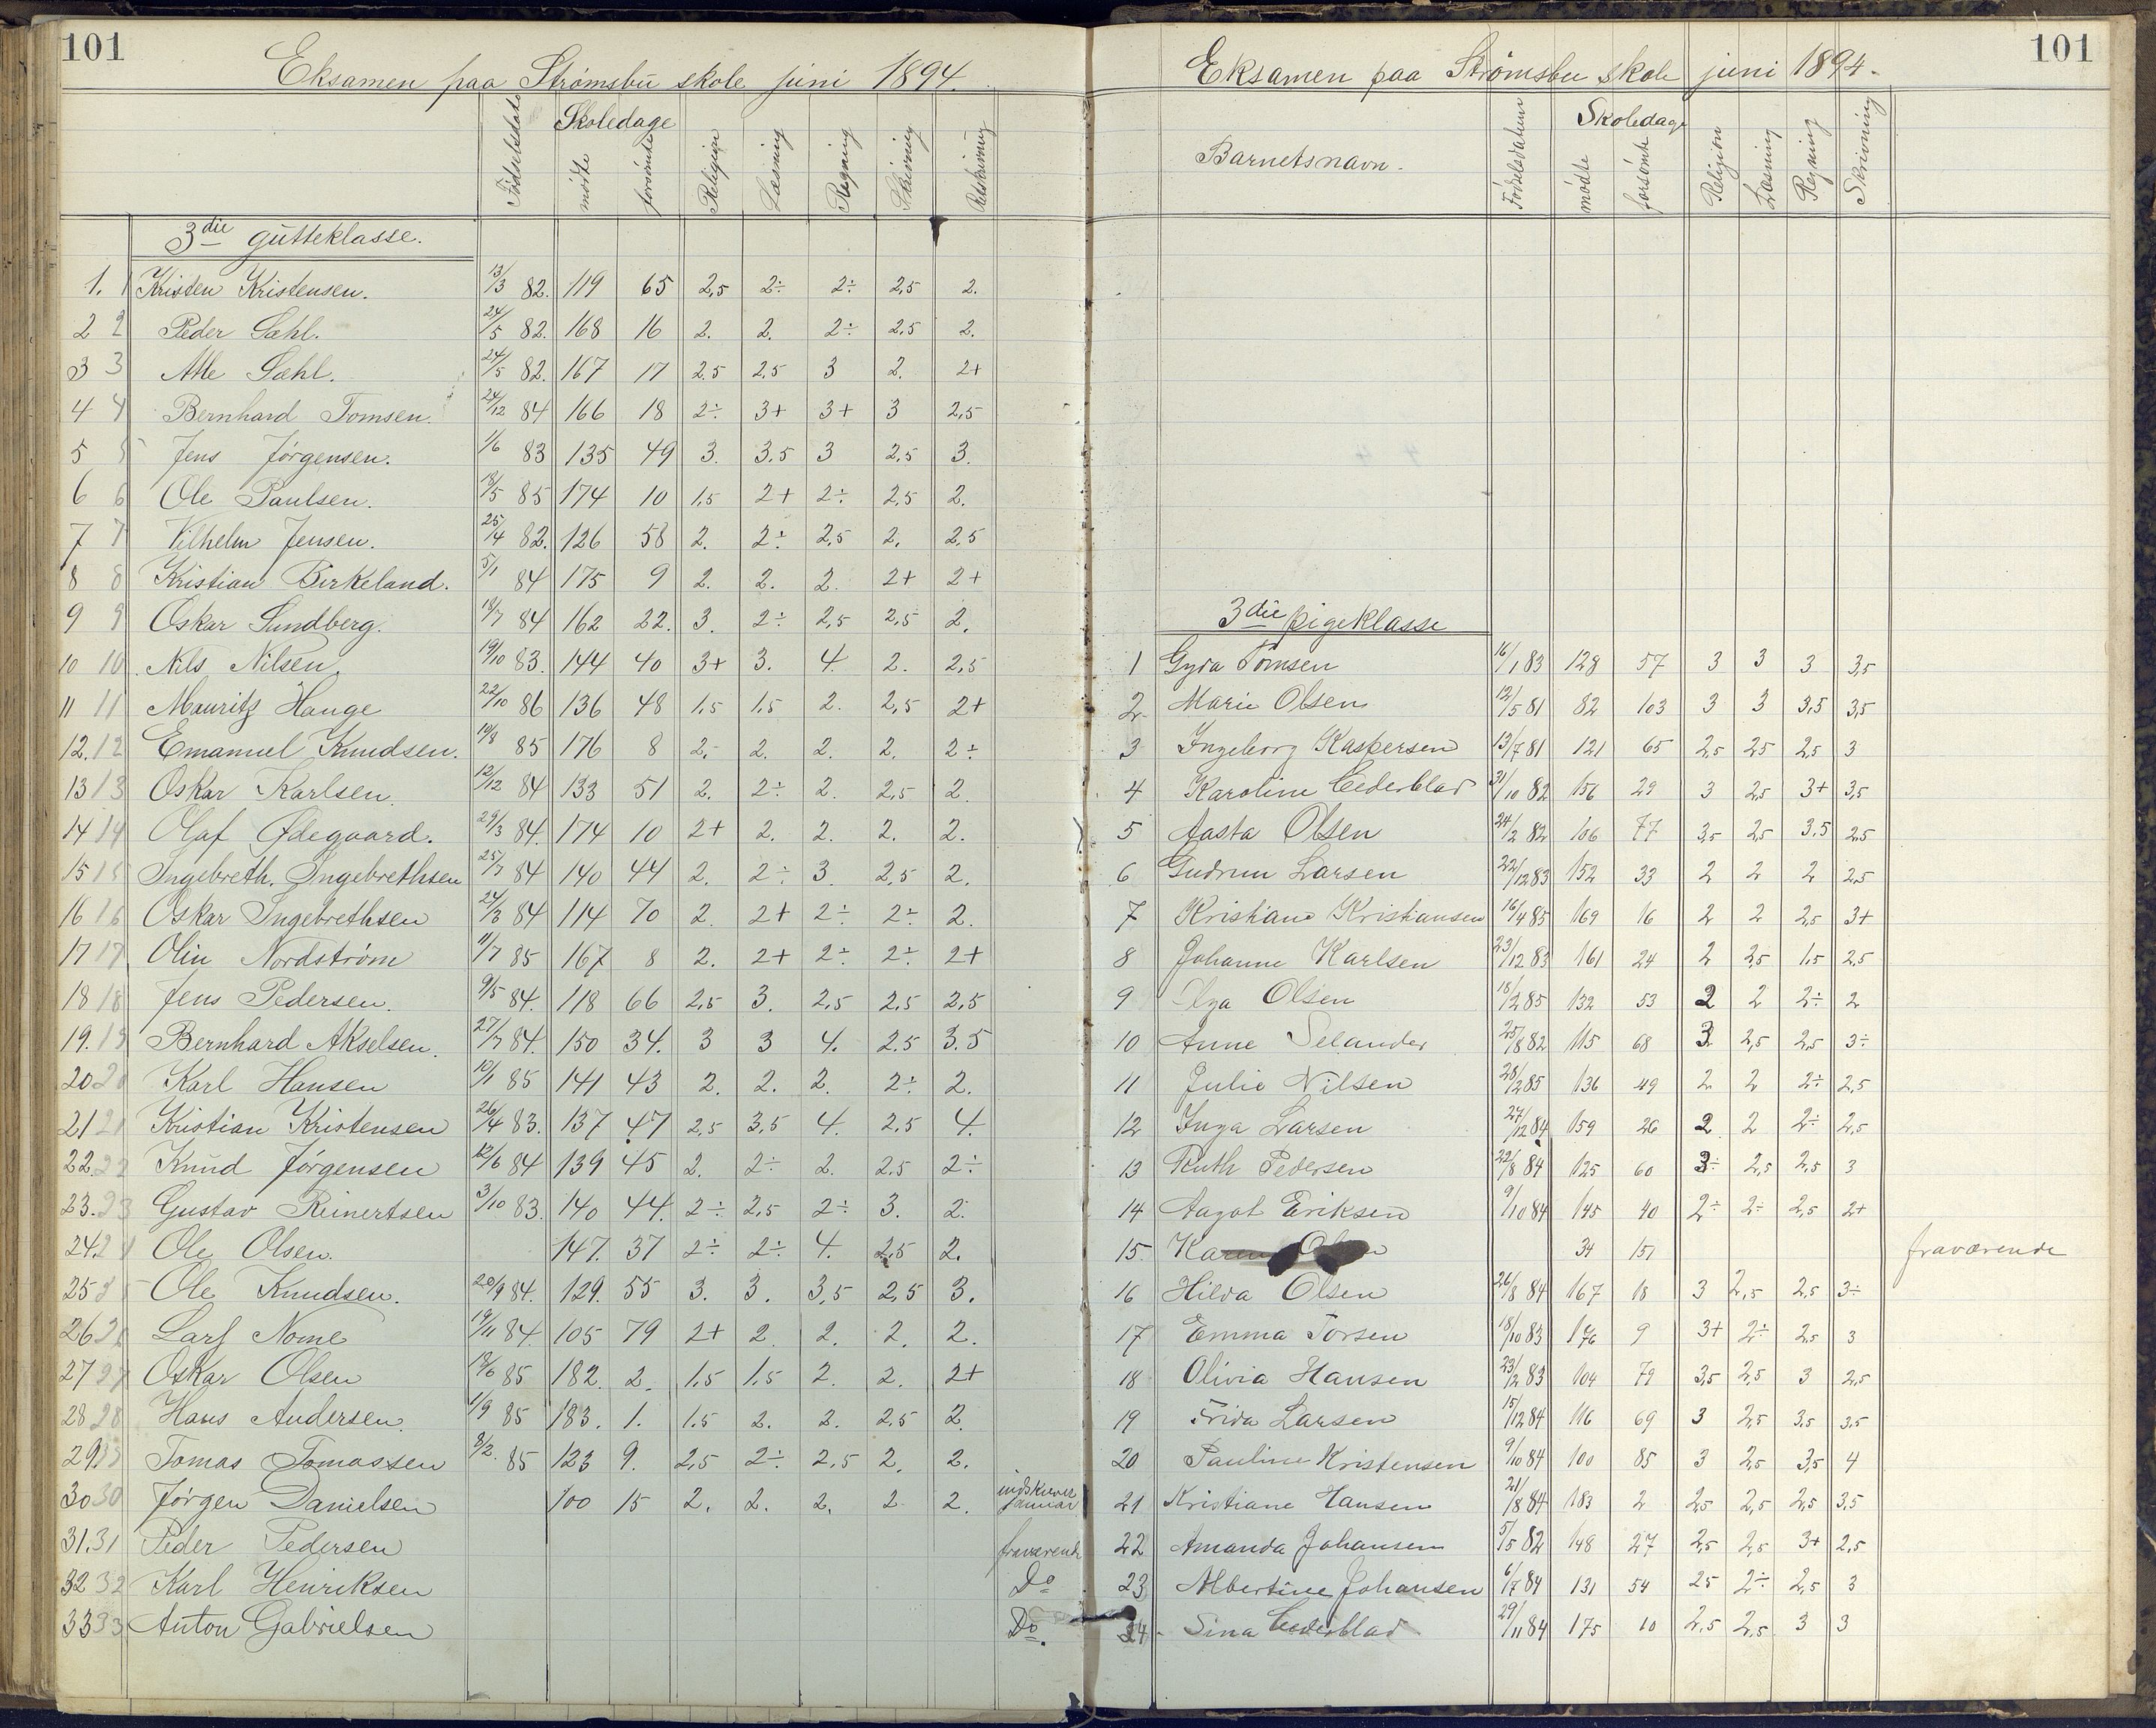 101
Eksamen paa Strømsbu skole juni 1894.
Fødselsdato Skoledage mødte forsømte Religion Læsning Regning Skrivning Retskrivning
3die gutteklasse.
1. 1 Kristen Kristensen. 13/3 82. 119 65 2,5 2÷ 2÷ 2,5 2.
2 2 Peder Sæhl. 24/5 82. 168 16 2. 2. 2÷ 2,5 2.
3 3 Atle Sæhl. 24/5 82. 167 17 2,5 2,5 3 2. 2+
4 4 Bernhard Tomsen. 24/12 84 166 18 2÷ 3+ 3+ 3 2,5
5 5 Jens Jørgensen. 1/6 83 135 49 3. 3.5 3 2,5 3.
6 6 Ole Paulsen. 18/5 85 174 10 1,5 2+ 2÷ 2,5 2.
7 7 Vilhelm Jensen. 25/4 82. 126 58 2. 2÷ 2,5 2. 2,5
8 8 Kristian Birkeland. 5/1 84 175 9 2. 2. 2. 2+ 2+
9 9 Oskar Sundberg. 18/7 84 162 22. 3. 2÷ 2,5 2,5 2.
10 10 Nils Nilsen. 19/10 83. 144 40 3+ 3. 4. 2. 2,5
11 11 Mauritz Hauge 22/10 86 136 48 1,5 1,5 2. 2,5 2+
12. 12 Emanuel Knudsen. 10/8 85 176 8 2,- 2. 2. 2. 2÷
13 13 Oskar Karlsen. 12/12 84 133 51 2. 2÷ 2. 2,5 2.
14 14 Olaf Ødegaard. 29/3 84. 174 10 2+ 2. 2. 2. 2.
15 15 Ingebreth. Ingebrethsen 25/7 84 140 44 2. 2÷ 3. 2,5 2.
16 16 Oskar Ingebrethsen 24/3 84 114 70 2. 2+ 2÷ 2÷ 2.
17 17 Olin Nordstrøm 11/7 85 167 8 2. 2+ 2÷ 2÷ 2+
18 18 Jens Pedersen. 9/5 84. 118 66 2,5 3. 2,5 2,5 2,5
19. 19 Bernhard Akselsen. 27/7 84. 150 34. 3 3 4. 2.5 3.5
20 20 Karl Hansen 10/1 85 141 43 2. 2. 2. 2÷ 2.
21 21 Kristian Kristensen 26/4 83. 137 47 2,5 3,5 4. 2,5 4.
22. 22 Knud Jørgensen 12/6 84 139 45 2. 2÷ 2. 2,5 2÷
23. 23 Gustav Reinertsen 3/10 83. 140 44. 2÷ 2,5 2÷ 3. 2.
24. 24 Ole Olsen. 147. 37 2÷ 2÷ 4. 2,5 2.
25 25 Ole Knudsen. 20/9 84. 129. 55 3. 3. 3,5 2,5 3.
26 26 Larf Nome 19/11 84. 105 79 2+ 2. 2. 2. 2.
27 27 Oskar Olsen 18/6 85 182. 2. 1.5 1.5 2. 2. 2+
28 28 Hans Andersen. 1/9 85 183. 1. 1.5 2. 2. 2,5 2.
29. Tomas Tomassen 8/2. 85 123 9. 2,5 2÷ 2,5 2. 2.
30 30 Jørgen Danielsen 100 15 2. 2. 2. 2. 2. indskrevet januar
31. 31 Peder Pedersen fraværende
32 32 Karl Henriksen Do
33 33 Anton Gabrielsen Do.
101
Eksamen paa Strømsbu skole juni 1894.
Barnets navn. Fødselsdatum Skoledage mødte forsømte Religion Læsning Regning Skrivning
3die pigeklasse
1 Gyda Tomsen 16/1 83 128 57 3 3 3 3,5
2. Marie Olsen 12/5 81 82 103 3 3 3,5 3,5
3 Ingeborg Kaspersen 13/7 81 121 65 2,5 2,5 2,5 3
4 Karoline Cederblad 31/10 82 156 29 3 2,5 3+ 3,5
5 Aasta Olsen 24/2 82 106 77 3,5 2,5 3,5 2,5
6 Gudrun Larsen 22/12 83 152 33 2 2 2 2,5
7 Kristiane Kristiansen 16/4 85 169 16 2 2 2,5 3+
8 Johanne Karlsen 23/12 83 161 24 2 2,5 1,5 2,5
9 Olga Olsen 18/2 85 132 53 2 2 2÷ 2
10 Anne Selander 25/8 82 115 68 3 2,5 2,5 3÷
11 Julie Nilsen 28/2 85 136 49 2 2 2÷ 2,5
12 Inga Larsen 27/12 84 159 26 2 2 2÷ 2,5
13 Ruth Pedersen 22/8 84 125 60 3÷ 2,5 2,5 3
14 Aagot Eriksen 9/10 84 145 40 2÷ 2÷ 2,5 2+
15. Karen Olsen 34 151 fraværende
16 Hilda Olsen 26/8 84 167 18 3 2,5 2,5 3÷
17 Emma Torsen 18/10 83 176 9 3+ 2÷ 2,5 3
18 Olivia Hansen 23/2 83 104 79 3,5 2,5 3 2,5
19 Frida Larsen 15/12 84 116 69 3 2,5 3,5 3,5
20 Pauline Kristensen 9/10 84 100 85 3 2,5 3,5 4
21 Kristiane Hansen 21/8 84 183 2 2,5 2,5 2,5 3,5
22 Amanda Johansen 5/5 82 148 27 2,5 2,5 3+ 2,5
23 Albertine Johansen 6/7 84 131 54 25 2÷ 2,5 3
24 Sina Cederblad 29/11 84 175 10 2,5 2,5 3 3